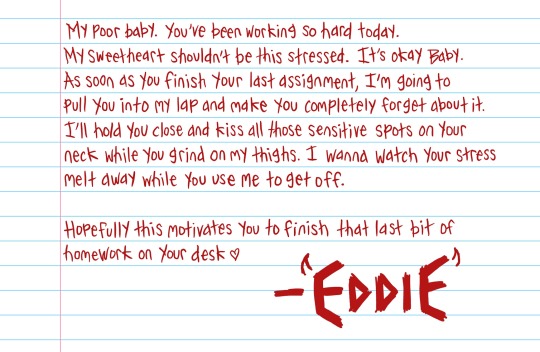 My poor baby. You've been working so hard today.
My sweetheart shouldn't be this stressed. It's okay Baby.
As soon as you finish your last assignment, I'm going to
pull you into my lap and make you completely forget about it.
I'll hold you close and kiss all those sensitive spots on your
neck while you grind on my thighs. I wanna watch your stress
melt away while you use me to get off.
Hopefully this motivates you to finish that last bit of
homework on your desk ♡
-EDDIE